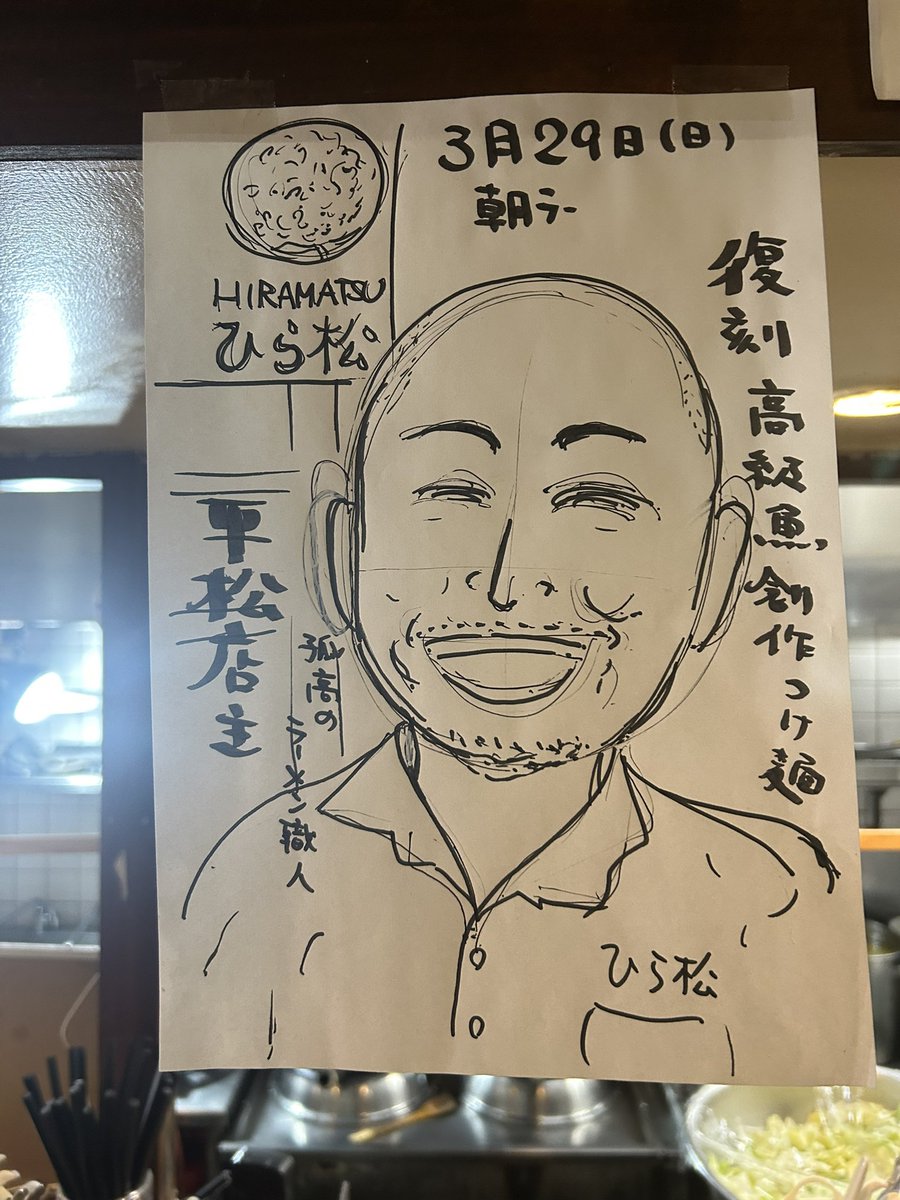 3月29日(日)
朝ラー
HIRAMATSU
ひら松
復刻 高級魚創作つけ麺
平松店主
孤高の
ラーメン職人
ひら松